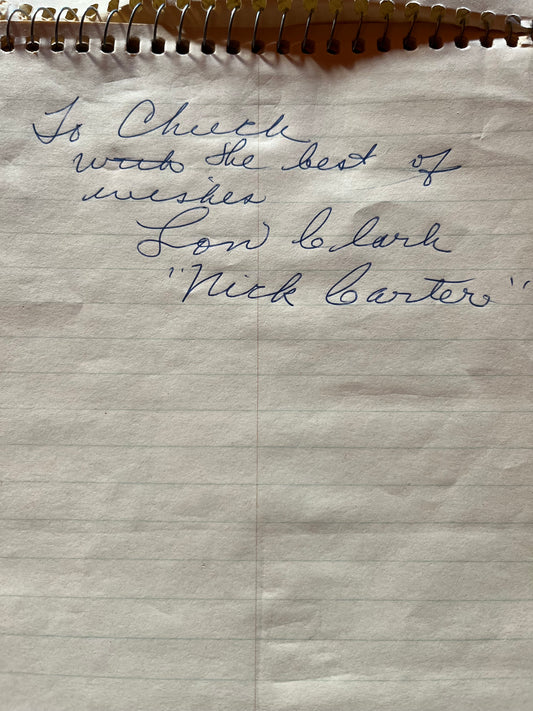 To Chuck
with the best of
wishes
Lon Clark
"Nick Carter"